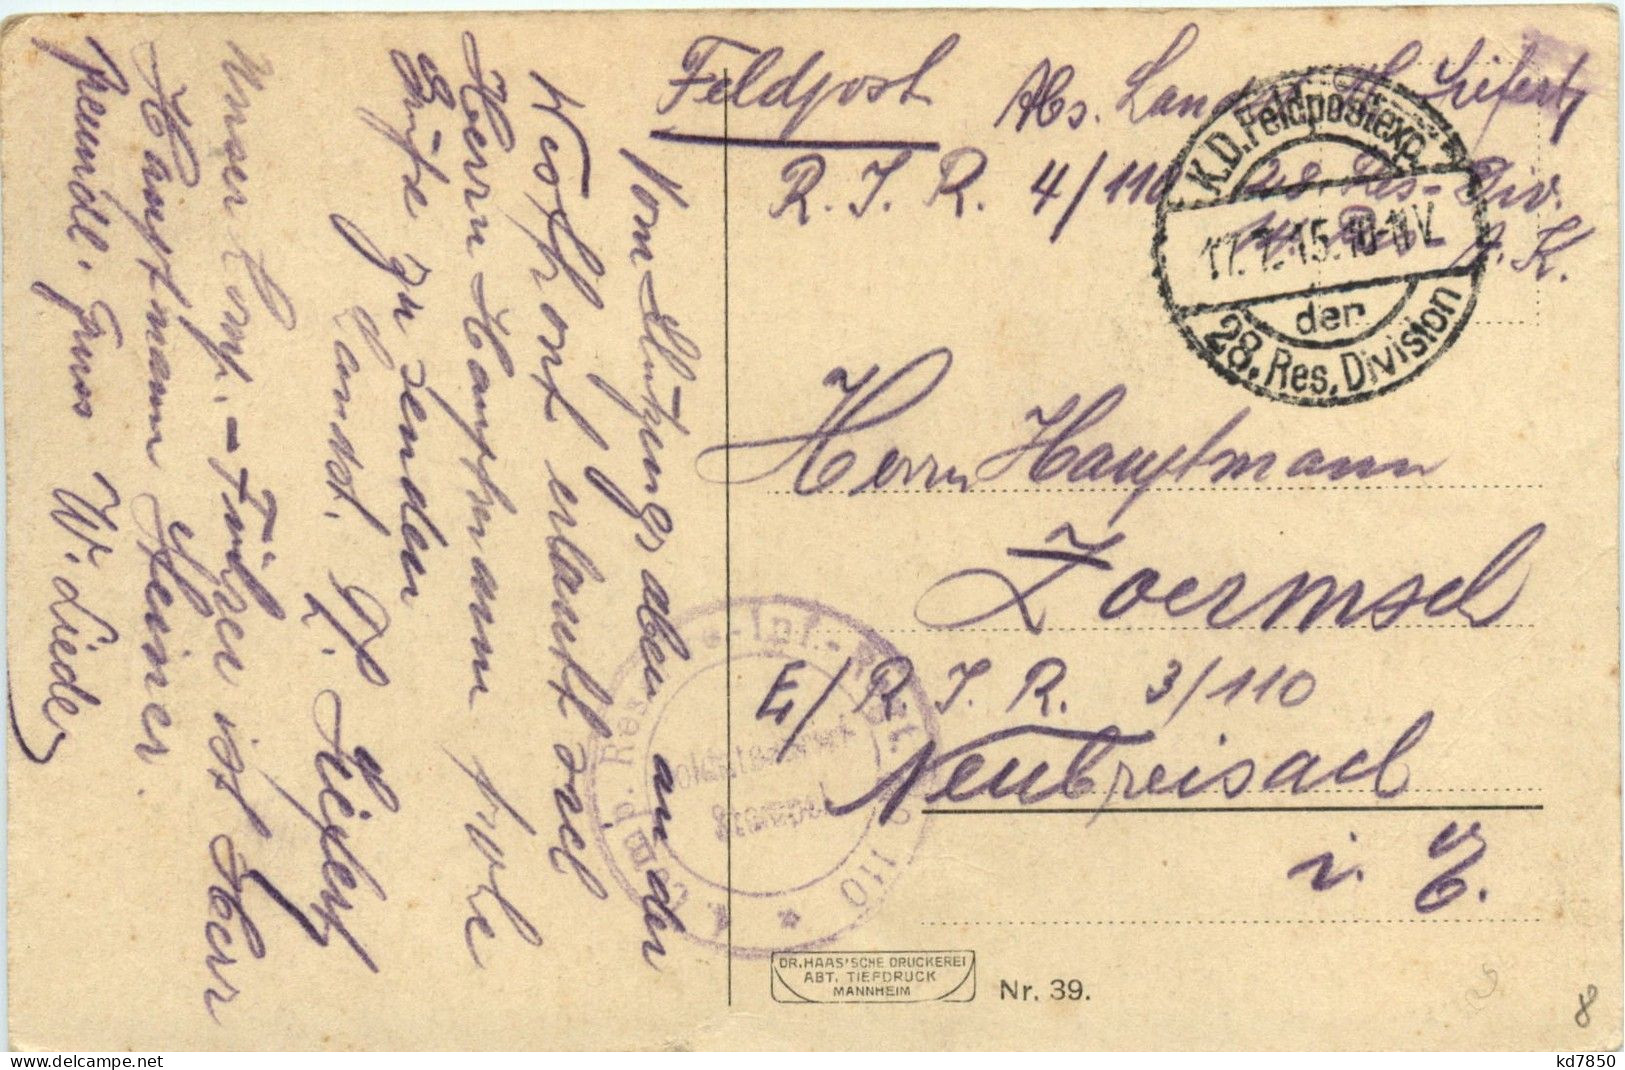 Feldpost
Abs. Landst. Siefert
R. I. R. 4/110 28. Res.-Div.
A. K.
K.D. Feldpostexp.
17.7.15.10-11V.
der
28. Res. Division
Herrn Hauptmann
Zoermsch
E/R. I. R. 3/110
Neubreisach
i. E.
Vom Schützengraben an der
Westfront erlaubt sich
Herrn Hauptmann
Grüße zu senden
Landst. Siefert
Unser Komp.-Führer ist Herr
Hauptmann Steiner.
freundl. Gruss W. Lieder
4. Comp. Res.-Inf.-Regt. 110
DR. HAAS'SCHE DRUCKEREI
ABT. TIEFDRUCK
MANNHEIM
Nr. 39.
8
delcampe.net
kd7850